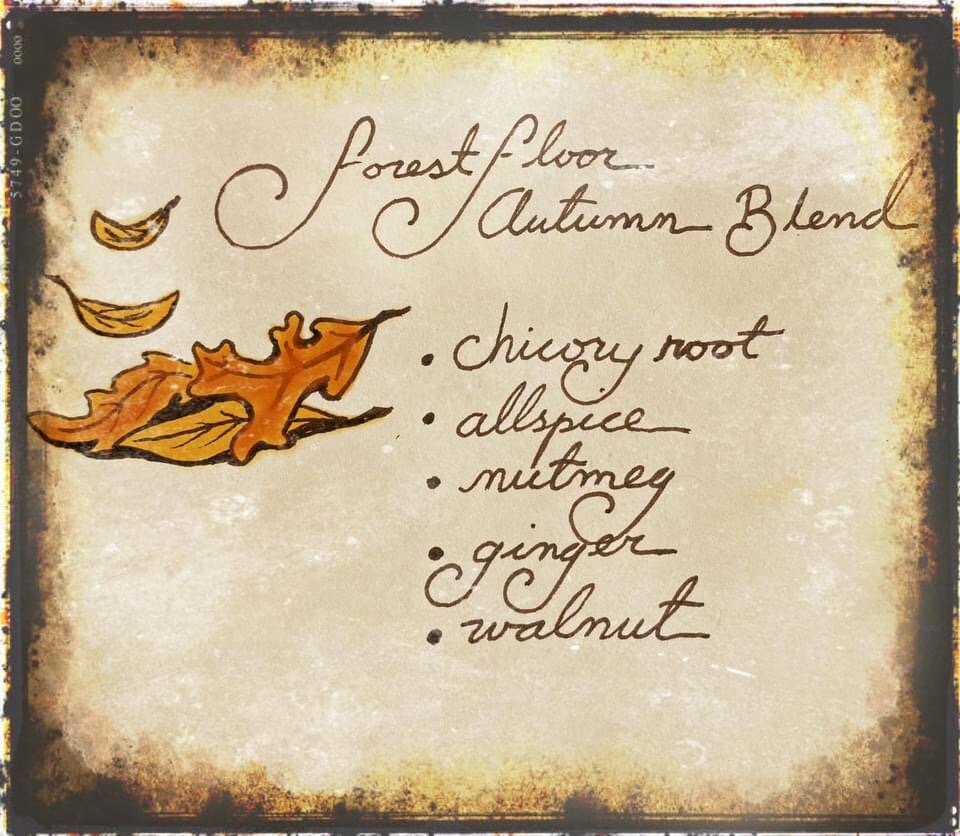 forest floor
Autumn Blend
• chicory root
• allspice
• nutmeg
• ginger
• walnut
5749-GDOO 0000